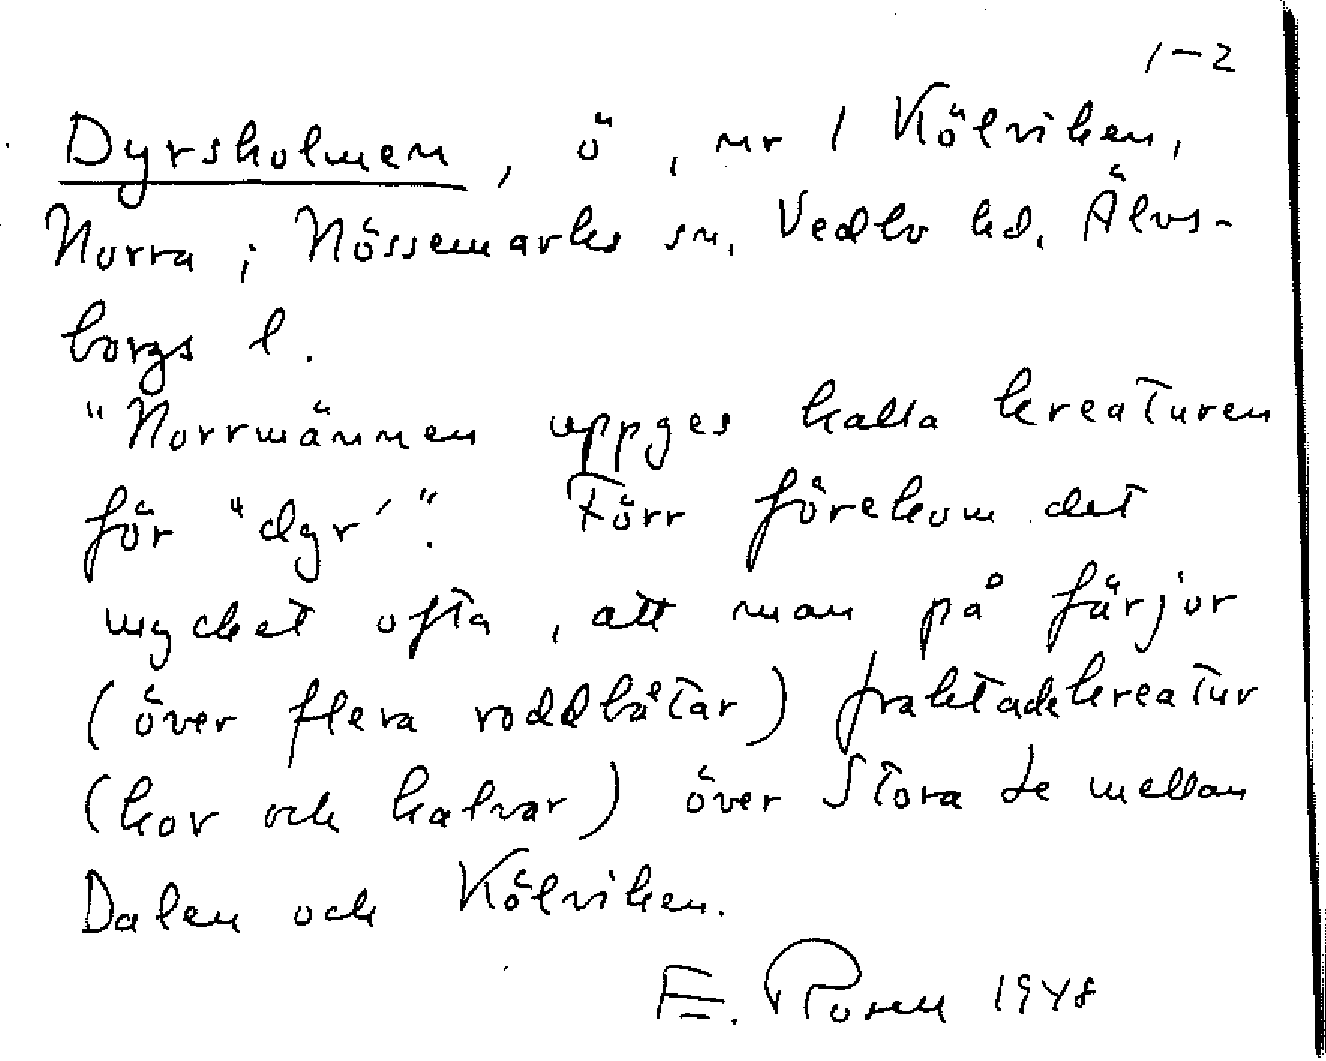 1-2
Dyrsholmen, ö, nr 1 Kölviken,
Norra; Nössemarks sn, Vedbo hd, Älvs-
borgs l.
"Norrmännen uppges kalla kreaturen
för "dyr´". Förr förekom det
mycket ofta, att man på färjor
(över flera roddbåtar) fraktade kreatur
(kor och kalvar) över Stora Le mellan
Dalen och Kölviken.
E. Rosell 1948